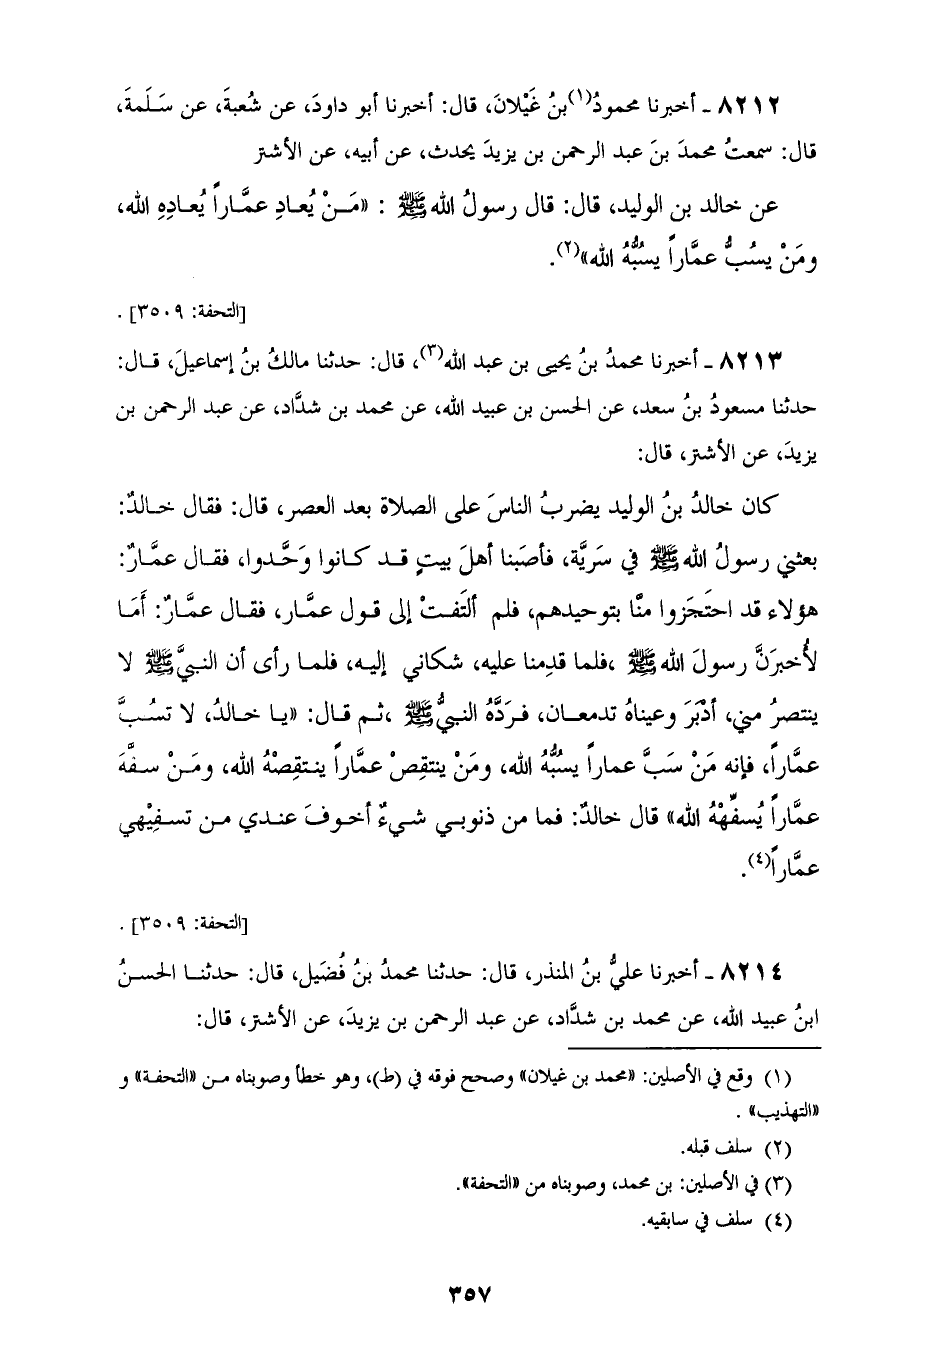 ٨٢١٢ ـ أخبرنا محمودُ(١)بنُ غَيْلانَ، قال: أخبرنا أبو داودَ، عن شُعبةَ، عن سَـلَمةَ،
قال: سمعتُ محمدَ بنَ عبد الرحمن بن يزيدَ يحدث، عن أبيه، عن الأشتر
عن خالد بن الوليد، قال: قال رسولُ الله ﷺ : «مَـنْ يُعـادِ عمَّـاراً يُعـادِهِ الله،
ومَنْ يسُبُّ عمَّاراً يسُبُّهُ الله»(٢).
[التحفة: ٣٥٠٩] .
٨٢١٣ ـ أخبرنا محمدُ بنُ يحيى بن عبد الله(٣)، قال: حدثنا مالكُ بنُ إسماعيلَ، قـال:
حدثنا مسعودُ بنُ سعد، عن الحسن بن عبيد الله، عن محمد بن شدَّاد، عن عبد الرحمن بن
يزيدَ، عن الأشتر، قال:
كان خالدُ بنُ الوليد يضربُ الناسَ على الصلاة بعد العصر، قال: فقال خـالدٌ:
بعثني رسولُ الله ﷺ في سَريَّة، فأصَبنا أهلَ بيتٍ قـد كـانوا وَحَّـدوا، فقـال عمَّـارٌ:
هؤلاء قد احتَجَزوا منَّا بتوحيدهم، فلم ألتَفـتْ إلى قـول عمَّـار، فقـال عمَّـارٌ: أَمَـا
لأُخبرَنَّ رسولَ الله ﷺ ،فلما قدِمنا عليه، شكاني إليـه، فلمـا رأى أن النبـيَّ ﷺ لا
ينتصرُ مني، أدْبَرَ وعيناهُ تدمعـان، فـرَدَّهُ النبيُّ ﷺ ،ثـم قـال: «يـا خـالدُ، لا تسُـبَّ
عمَّاراً، فإنه مَنْ سَبَّ عماراً يسُبُّهُ الله، ومَنْ ينتقِصْ عمَّاراً ينـتقِصْهُ الله، ومَـنْ سـفَّهَ
عمَّاراً يُسفِّهْهُ الله» قال خالدٌ: فما من ذنوبـي شـيءٌ أخـوفَ عنـدي مـن تسـفِيْهي
عمَّاراً(٤).
[التحفة: ٣٥٠٩] .
٨٢١٤ ـ أخبرنا عليُّ بنُ المنذر، قال: حدثنا محمدُ بنُ فُضَيل، قال: حدثنـا الحسـنُ
ابنُ عبيد الله، عن محمد بن شدَّاد، عن عبد الرحمن بن يزيدَ، عن الأشتر، قال:
(١) وقع في الأصلين: «محمد بن غيلان» وصحح فوقه في (ط)، وهو خطأ وصوبناه مـن «التحفـة» و
«التهذيب» .
(٢) سلف قبله.
(٣) في الأصلين: بن محمد، وصوبناه من «التحفة».
(٤) سلف في سابقيه.
٣٥٧